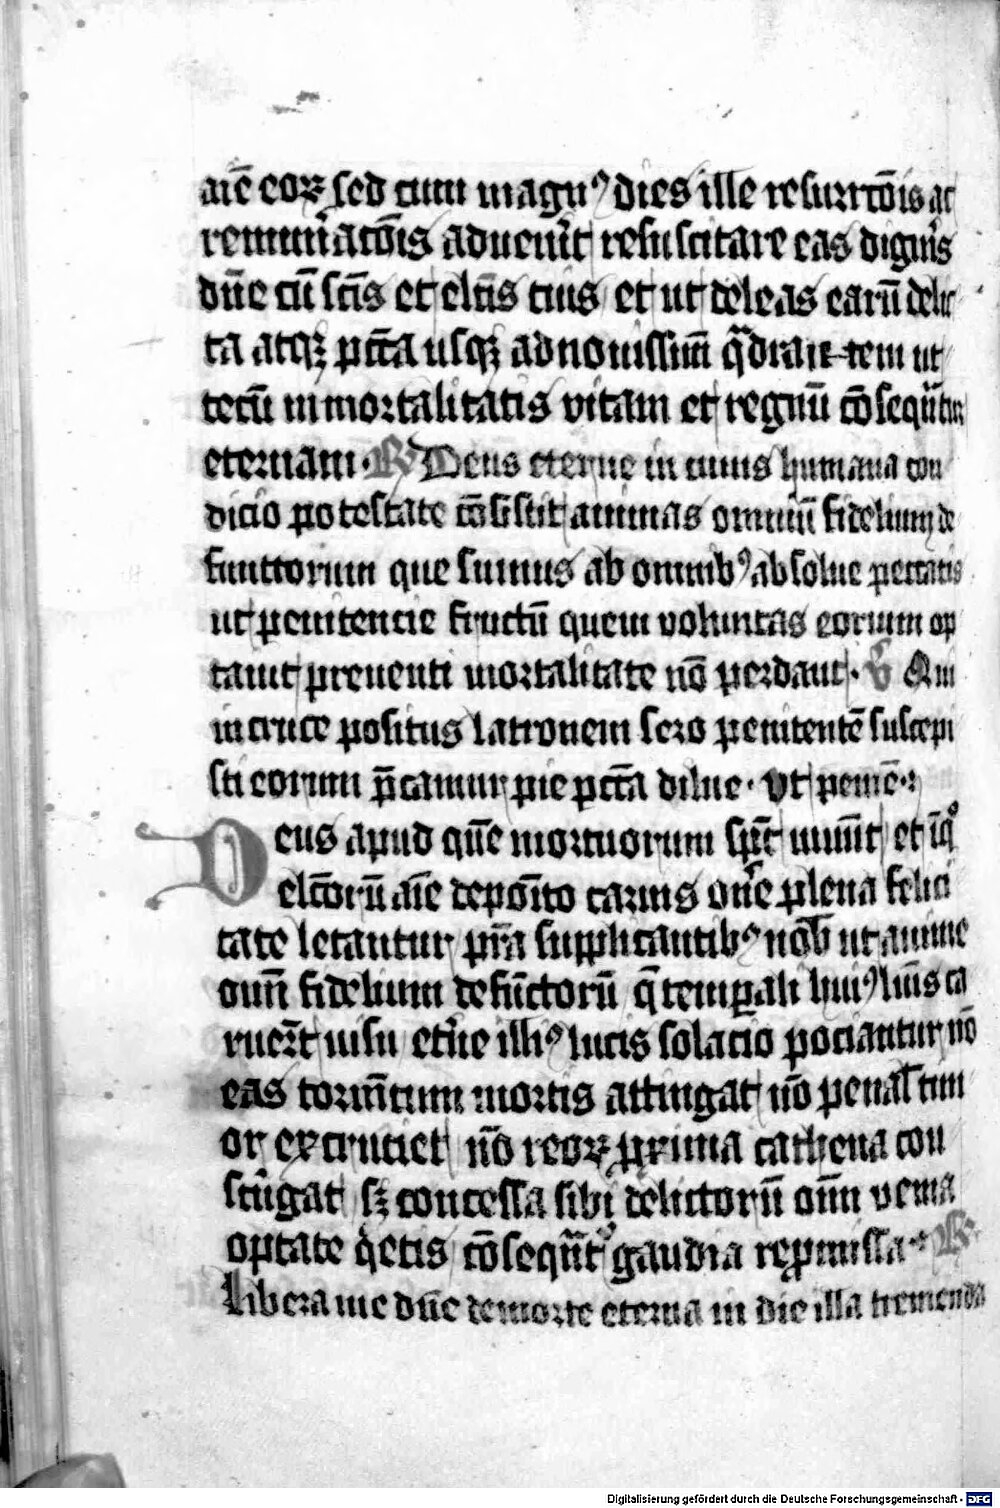 aīe eoꝝ sed cum magnꝰ dies ille resurrcōis ac
remun̄acōis aduen̄it resuscitare eas digneris
dn̄e cū scīs et elcīs tuis et ut deleas earū delic
ta atqꝫ pcc̄a usqꝫ ad nouissim̄ qᷓdran-tem ut
tecū inmortalitatis vitam et regnū cōsequūtur
eternam · ℟ Deus eterne in cuius humana con
dicio potestate cōsistit animas omniū fidelium de
functorum que sumus ab omnibꝰ absolue peccatis
ut penitencie fructū quem voluntas eorum op
tauit preuenti mortalitate nō perdant · ℣ Qui
in cruce positus latronem sero penitentē suscepi
sti eorum p̄camur pie pcc̄a dilue · Vt penīe ·
Deus apud quē mortuorum sp̄c uiuūt et ī qͦ
elc̄orū aīe depoīto carnis on̄e plena felici
tate letantur pr̄a supplicantibꝰ nob̄ ut anime
omī fidelium defūctorū q̄ temꝑali huiꝰ lūis ca
ruer̄t uisu et̄ne illiꝰ lucis solacio pociantur nō
eas torm̄tum mortis attingat nō penal̄ tim
or excruciet nō reoꝝ ꝓxima cathena con
strīgat sꝫ concessa sibi delictorū omī venia
optate qͥetis cōsequāt᷑ gaudia repromissa · ℟
Libera me dn̄e de morte eterna in die illa tremenda
Digitalisierung gefördert durch die Deutsche Forschungsgemeinschaft - DFG